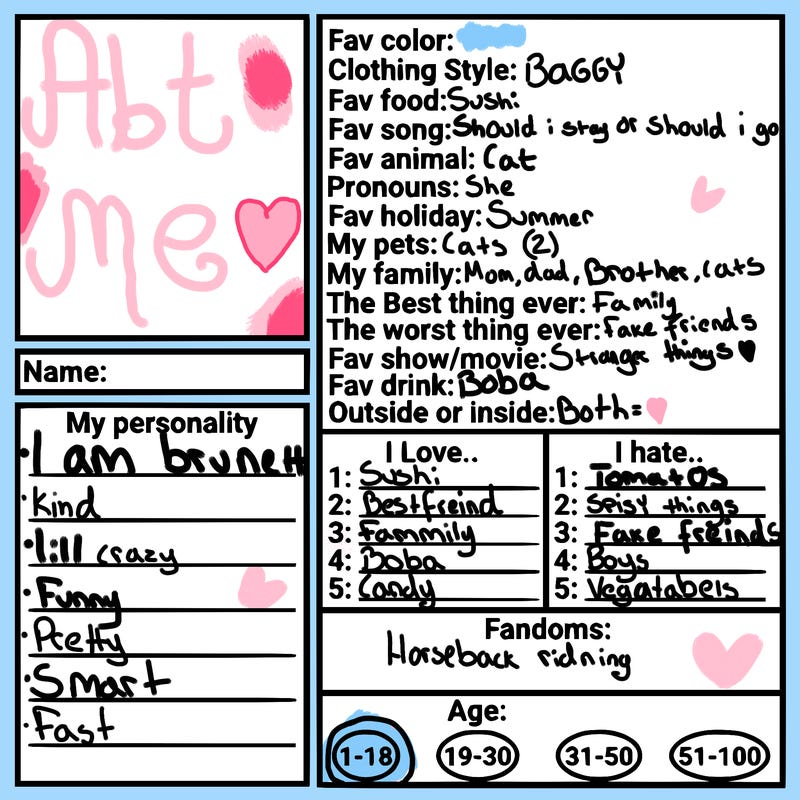 Abt
Me
Name:
My personality
• I am brunett
• Kind
• lill crazy
• Funny
• Pretty
• Smart
• Fast
Fav color:
Clothing Style: BAGGY
Fav food: Sushi
Fav song: Should i stay or Should i go
Fav animal: Cat
Pronouns: She
Fav holiday: Summer
My pets: Cats (2)
My family: Mom, dad, Brother, cats
The Best thing ever: Family
The worst thing ever: Fake friends
Fav show/movie: Stranger things ♥
Fav drink: Boba
Outside or inside: Both =
I Love..
1: Sushi
2: Bestfreind
3: Fammily
4: Boba
5: Candy
I hate..
1: Tomatos
2: Spisy things
3: Fake freinds
4: Boys
5: Vegatabels
Fandoms:
Horseback ridning
Age:
1-18 19-30 31-50 51-100